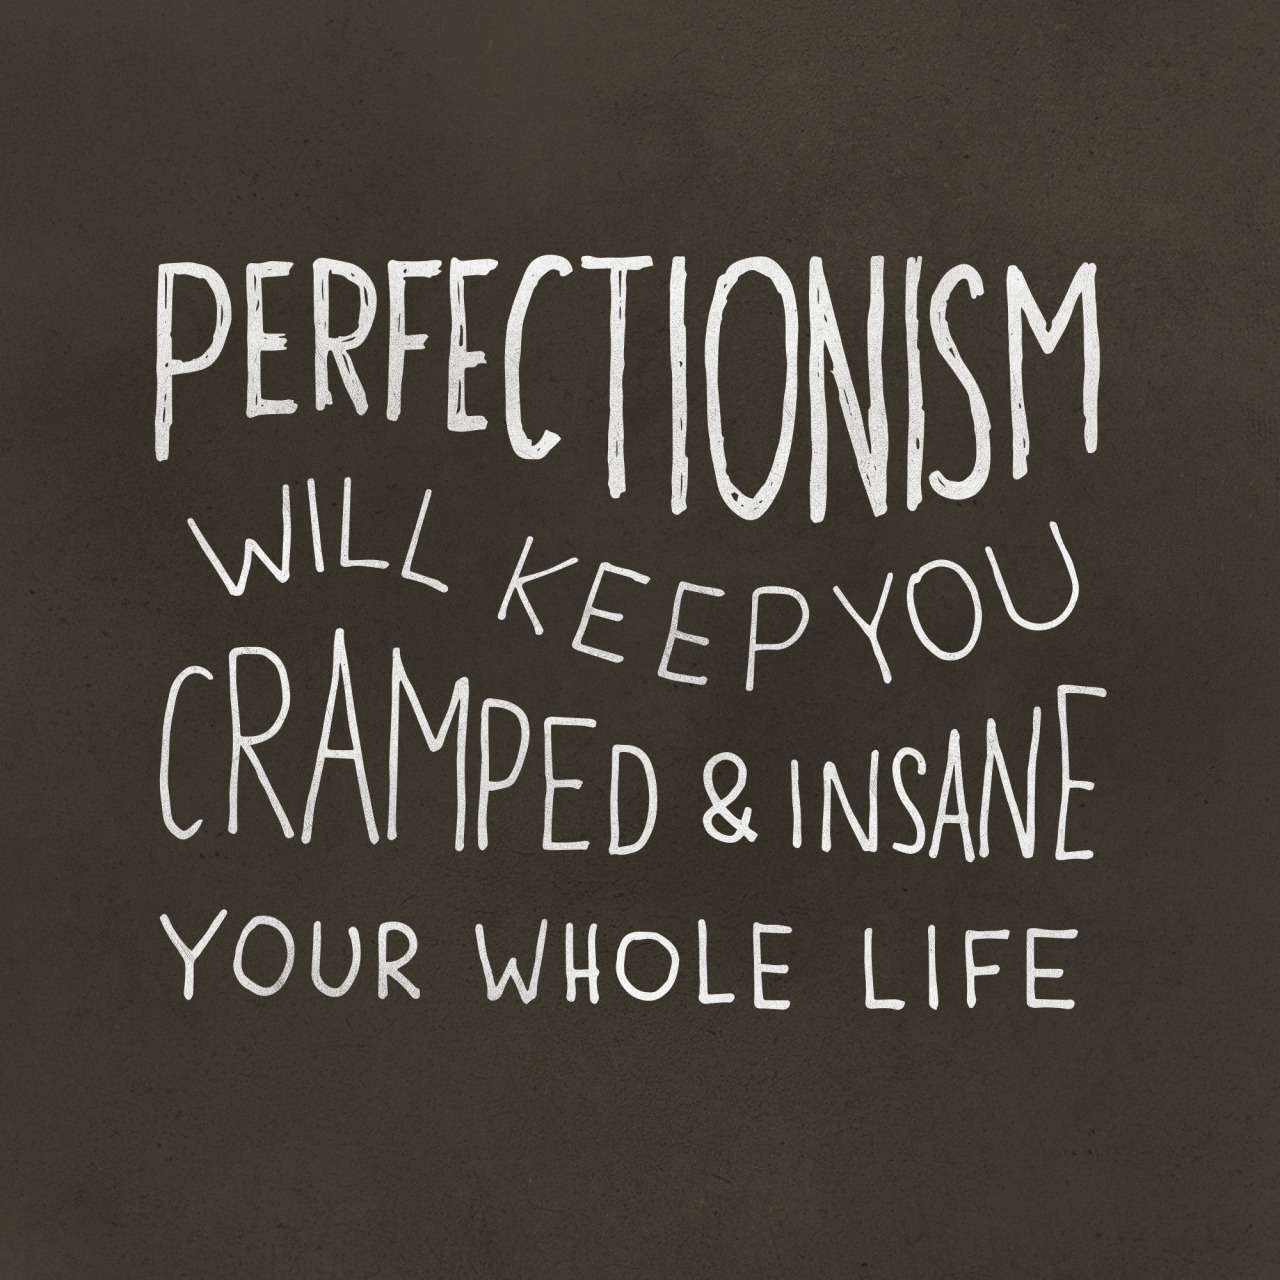 PERFECTIONISM
WILL KEEP YOU
CRAMPED & INSANE
YOUR WHOLE LIFE